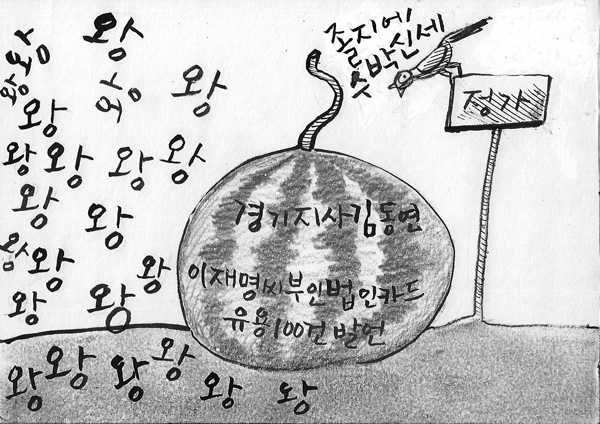 졸지에
수박신세
정가
경기지사김동연
이재명씨부인법인카드
유용100건발언
왕 왕
왕 왕 왕 왕
왕
왕 왕 왕 왕
왕 왕
왕 왕 왕
왕 왕
왕 왕 왕 왕 왕 왕